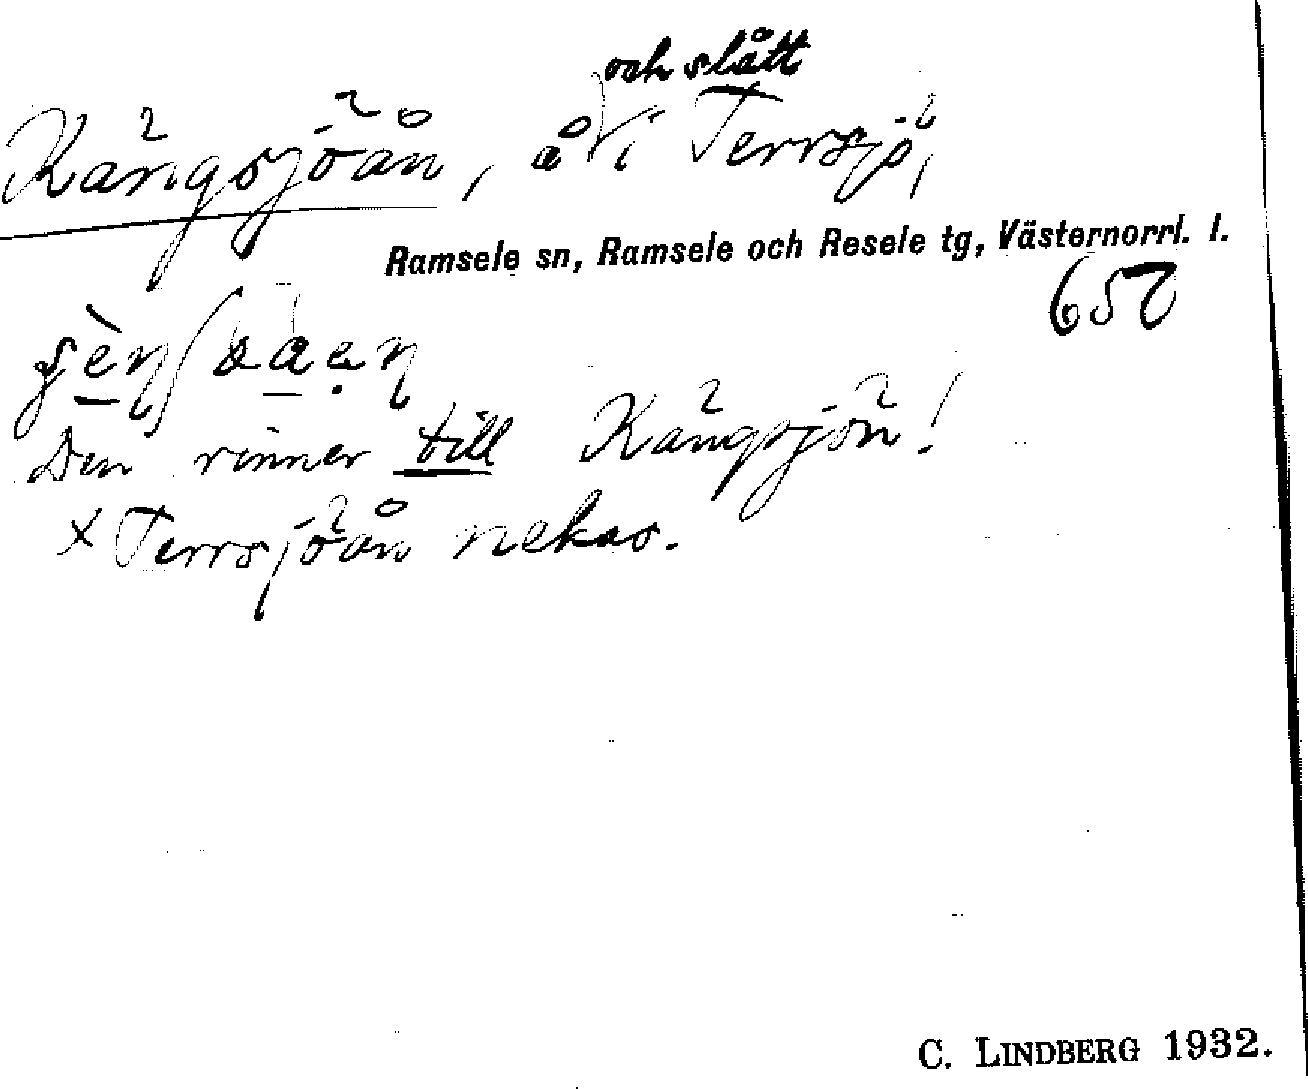 Kängsjöån, å och slått i Terrsjö,
Ramsele sn, Ramsele och Resele tg, Västernorrl. l.
650
Den rinner till Kängsjön!
x Terrsjöån nekas.
C. LINDBERG 1932.